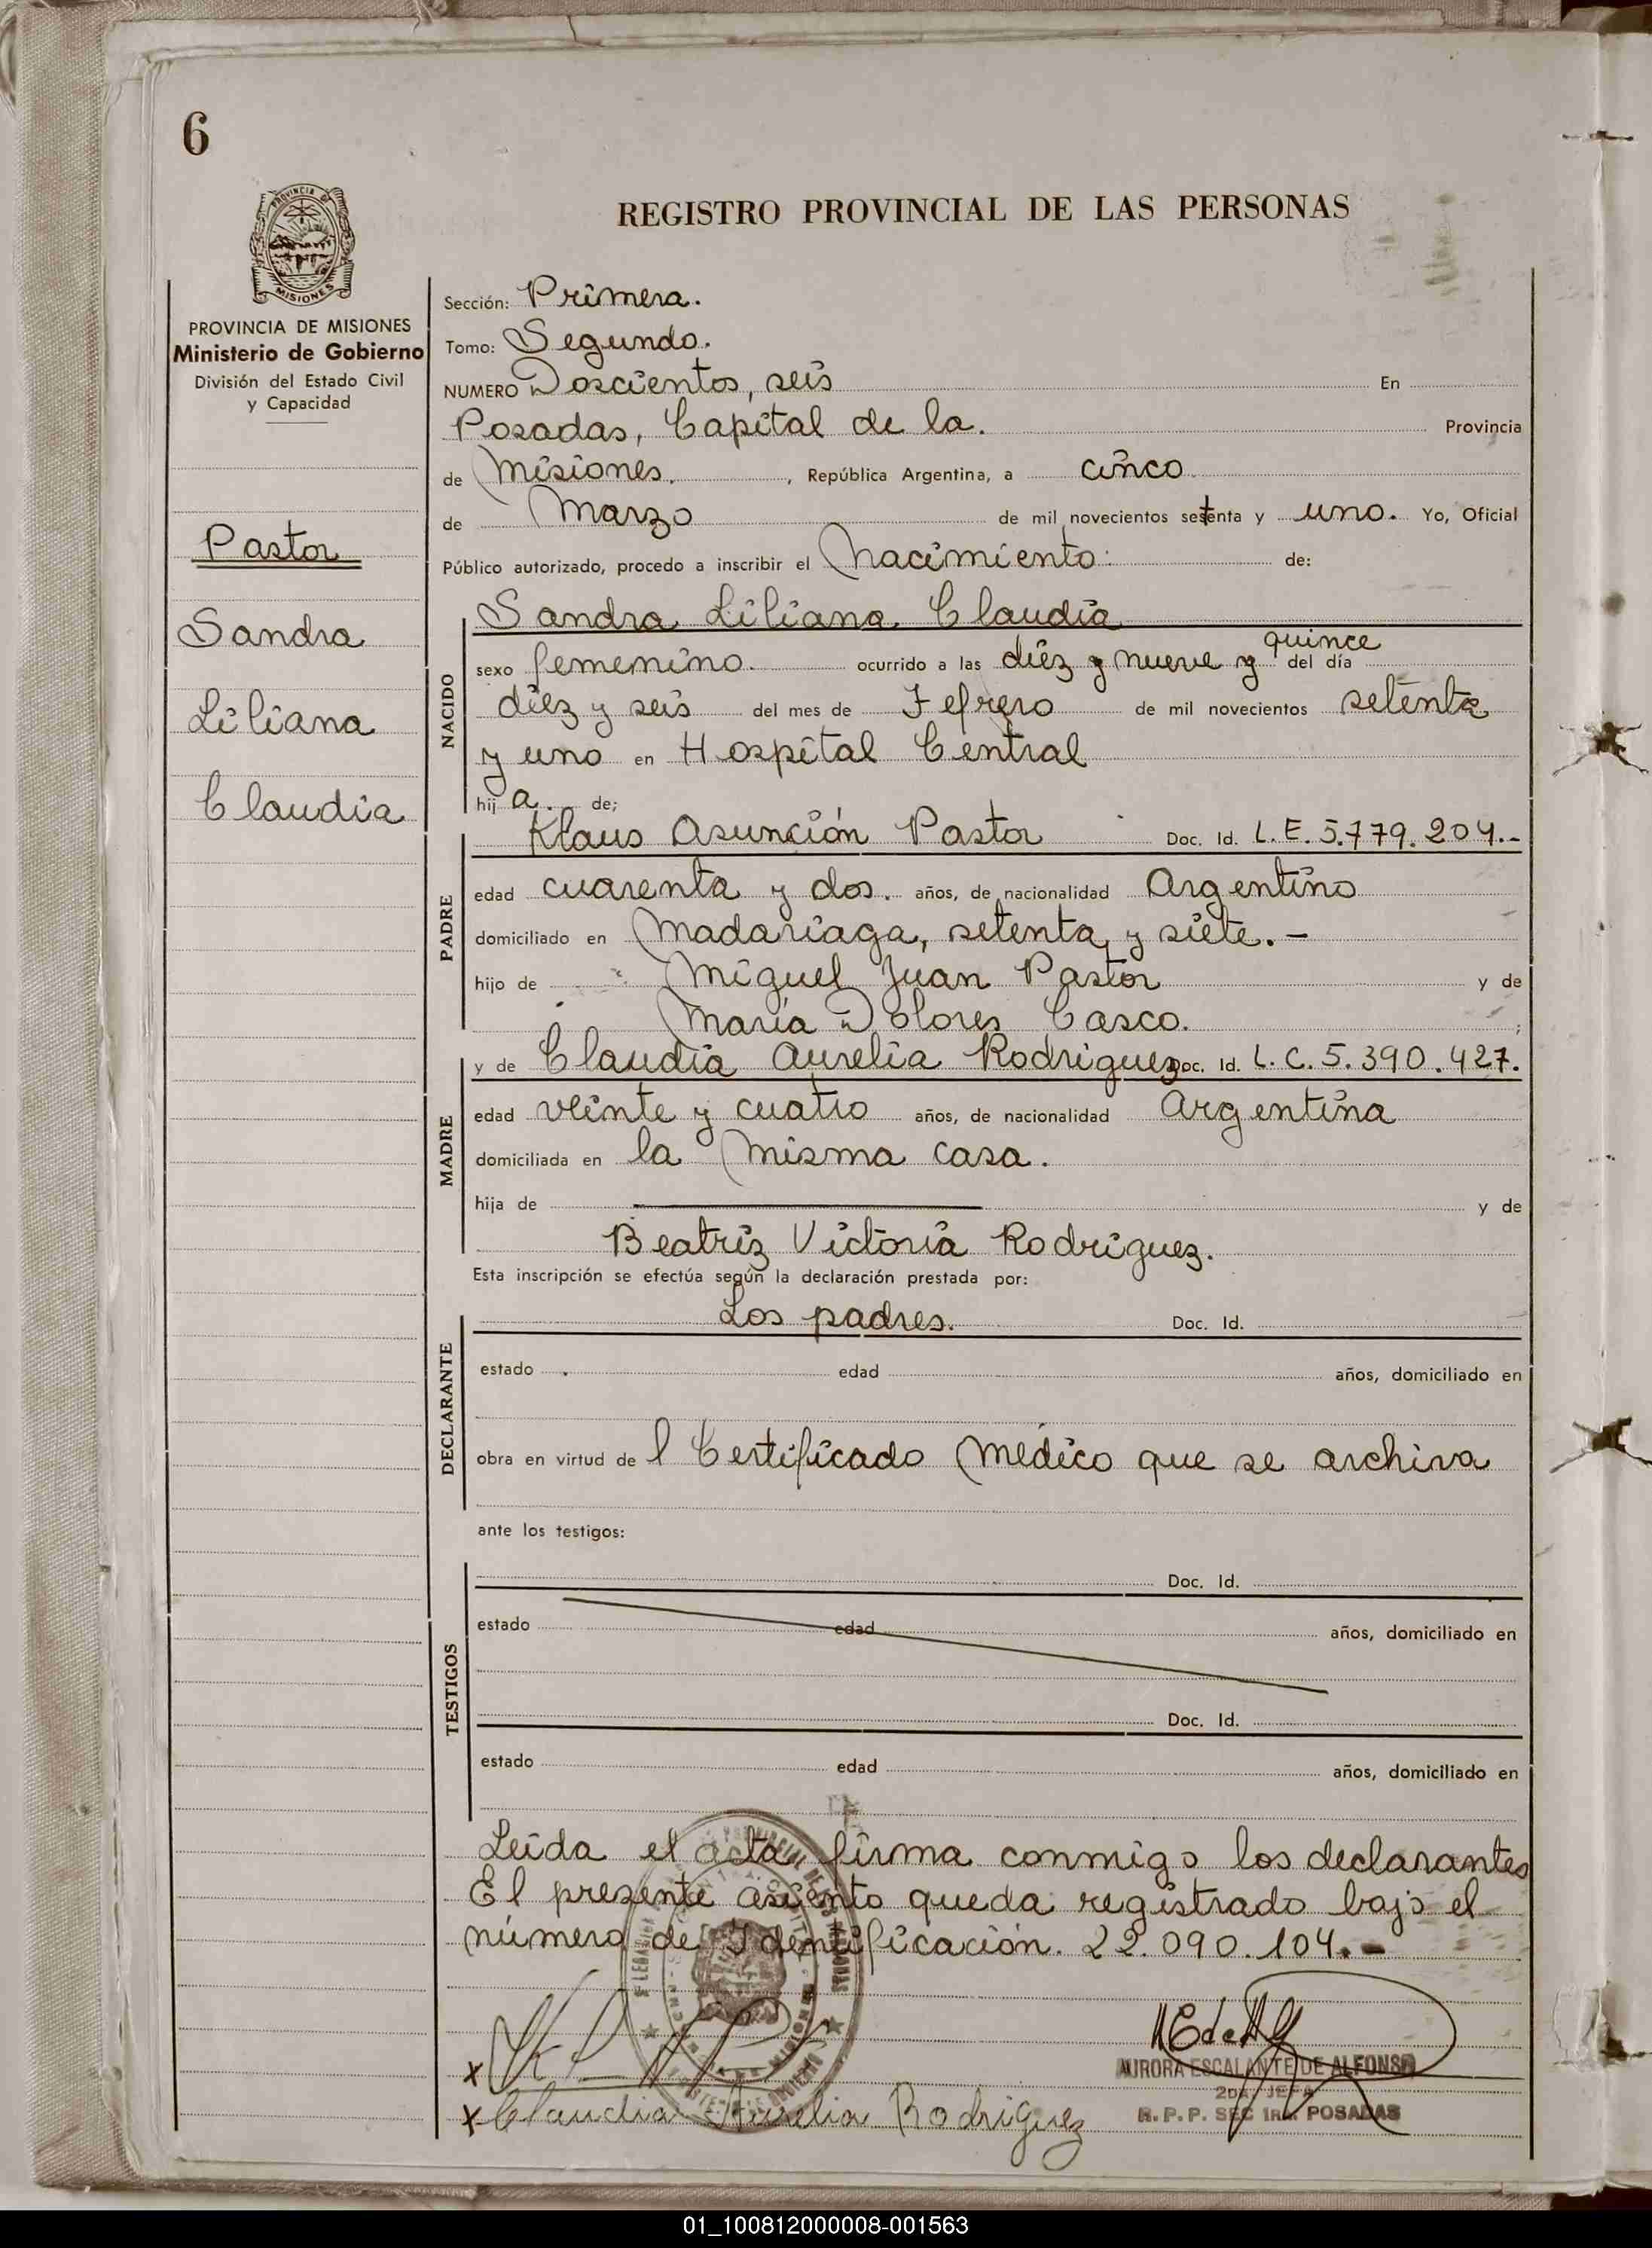 6
PROVINCIA DE
MISIONES
REGISTRO PROVINCIAL DE LAS PERSONAS
PROVINCIA DE MISIONES
Ministerio de Gobierno
División del Estado Civil
y Capacidad
Pastor
Sandra
Liliana
Claudia
Sección: Primera.
Tomo: Segundo.
NUMERO Doscientos, seis En
Posadas, Capital de la. Provincia
de Misiones. , República Argentina, a cinco
de Marzo de mil novecientos setenta y uno. Yo, Oficial
Público autorizado, procedo a inscribir el Nacimiento: de:
NACIDO
Sandra Liliana Claudia
sexo femenino. ocurrido a las diéz y nueve y quince del día
diéz y seis del mes de Fefrero de mil novecientos setenta
y uno en Hospital Central
hij a. de;
PADRE
Klaus Asunción Pastor Doc. Id. L.E. 5.779.204.-
edad cuarenta y dos. años, de nacionalidad Argentino
domiciliado en Madariaga, setenta y siete.-
hijo de Miguel Juan Pastor y de
María Dolores Casco. ;
MADRE
y de Claudia Aurelia Rodriguez Doc. Id. L.C. 5.390.427.
edad veinte y cuatro años, de nacionalidad Argentina
domiciliada en la misma casa.
hija de y de
Beatríz Victoria Rodriguez.
Esta inscripción se efectúa según la declaración prestada por:
DECLARANTE
Los padres. Doc. Id.
estado edad años, domiciliado en
obra en virtud de l Certificado Médico que se archiva
ante los testigos:
TESTIGOS
Doc. Id.
estado edad años, domiciliado en
Doc. Id.
estado edad años, domiciliado en
Leida el acta, firma conmigo los declarantes
El presente asiento queda registrado bajo el
número de Identificación. 22.090.104.-
x
x Claudia Aurelia Rodriguez
AURORA ESCALANTE DE ALFONSO
2DA. JEFA
R.P.P. SEC 1RA. POSADAS
01_100812000008-001563